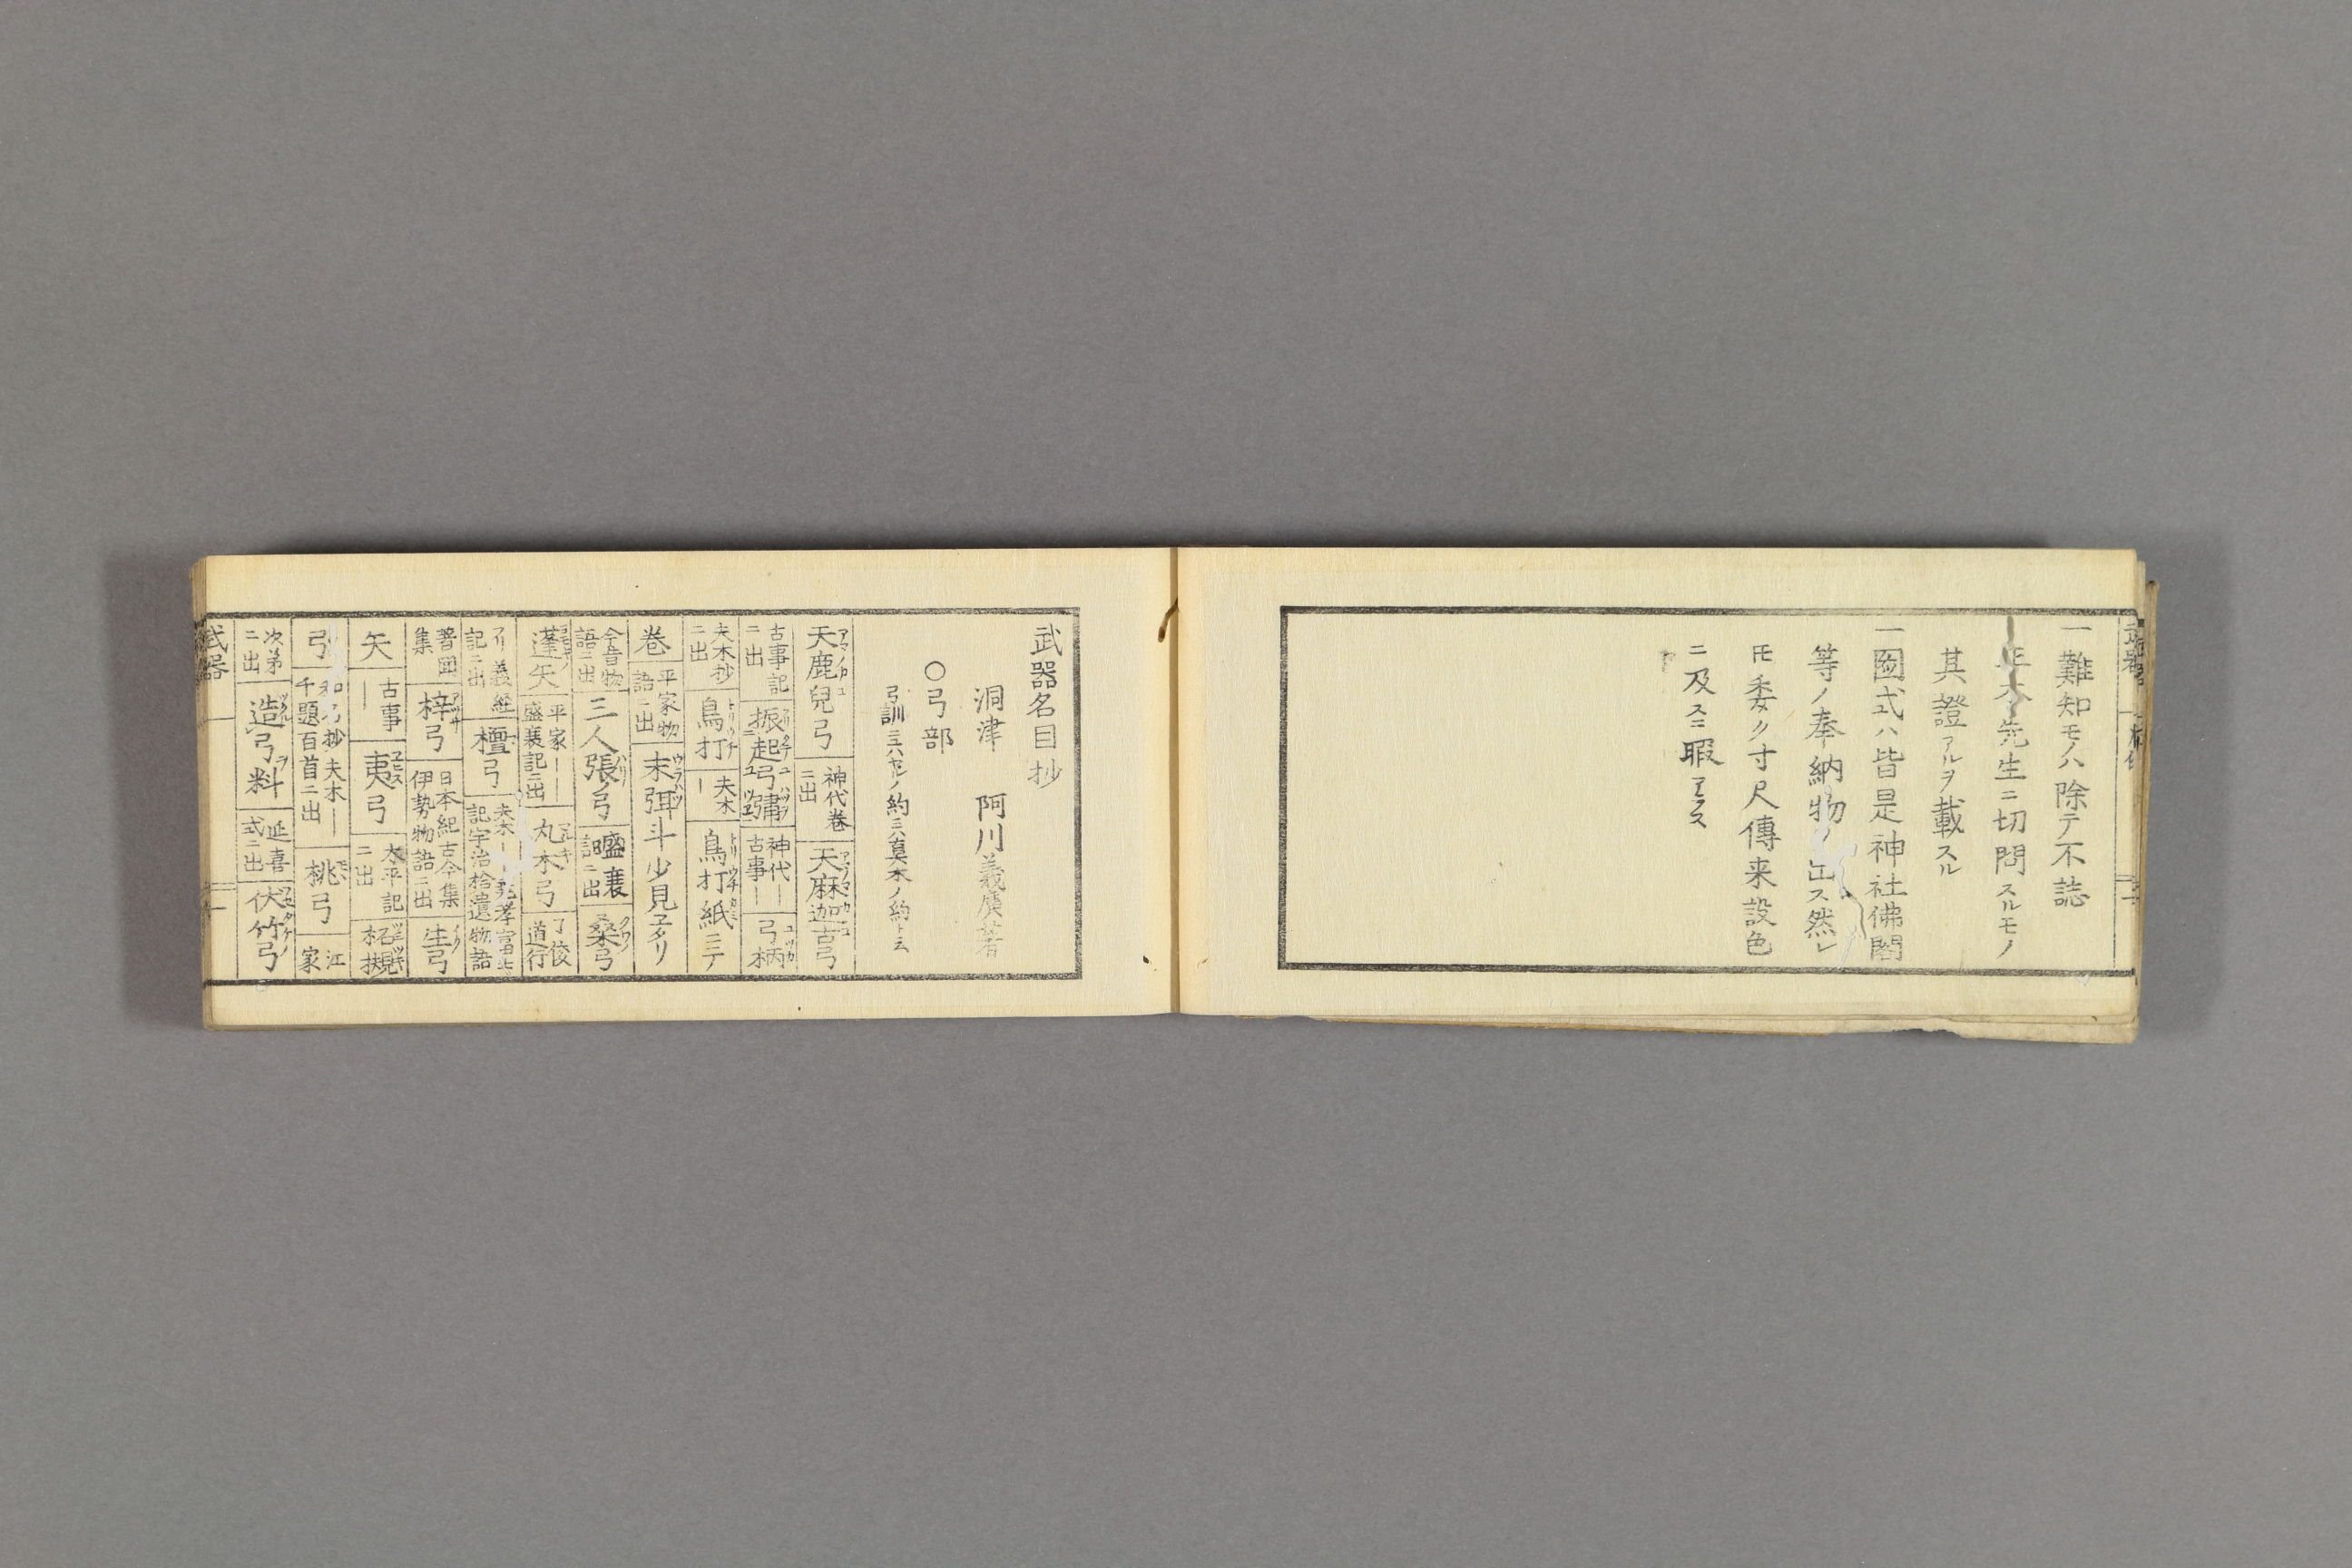 一難知モノハ除テ不誌
先生ニ切問スルモノ
其證アルヲ載スル
一圖式ハ皆是神社佛閣
等ノ奉納物ノ出ス然レ
𪜈委ク寸尺傳来設色
ニ及スニ暇アラス
武器名目抄
洞津 阿川義廣著
○弓部
弓訓
天鹿兒弓 神代巻ニ出 天麻迦古弓
古事記ニ出 振起弓彇 神代―古事― 弓柄
夫木抄ニ出 鳥打 夫木― 鳥打紙ニテ
巻 平家物語ニ出 末弭斗少見ヱタリ
今昔物語ニ出 三人張ノ弓 盛衰記ニ出 桑弓
蓬矢 平家―盛衰記ニ出 丸木弓
アリ義経記ニ出 檀弓 記宇治拾遺物語
集 梓弓 日本紀古今集伊勢物語ニ出 生弓
矢 古事― 夷弓 太平記ニ出
弓 和名抄夫木―千題百首ニ出 桃弓 江家
次第ニ出 造弓料 延喜式ニ出 伏竹弓
武器